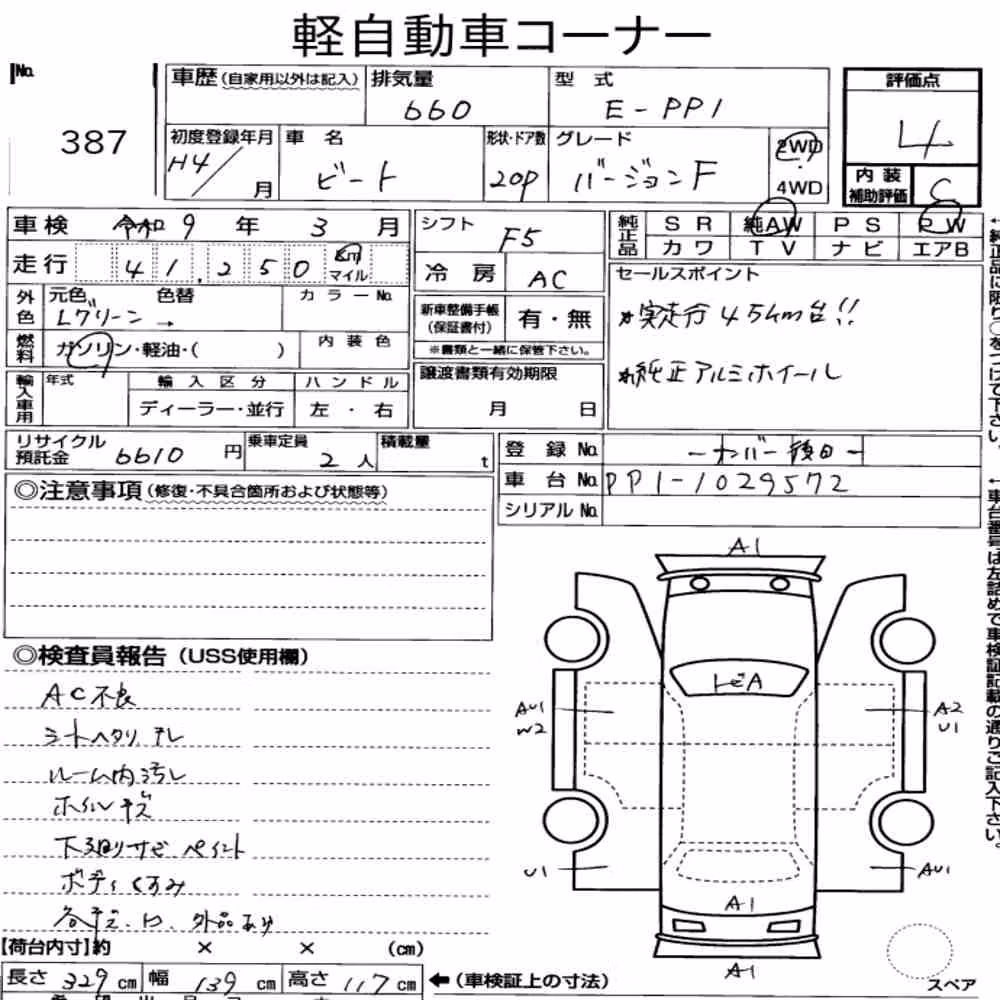 軽自動車コーナー
No. 387
車歴(自家用以外は記入) 排気量 660 型式 E-PP1 評価点 4
初度登録年月 H4/月 車名 ビート 形状・ドア数 2OP グレード バージョンF 2WD 4WD 内装補助評価 C
車検 令和9年3月 シフト F5 純正品 SR 純AW PS PW
カワ TV ナビ エアB
走行 41,250 km マイル 冷房 AC
セールスポイント
*実走行45km台!!
*純正アルミホイール
外色 元色 Lグリーン → 色替 カラーNo.
新車整備手帳(保証書付) 有・無
※書類と一緒に保管下さい。
燃料 ガソリン・軽油・( ) 内装色
輸入車用 年式 輸入区分 ハンドル
ディーラー・並行 左・右
譲渡書類有効期限
月 日
リサイクル預託金 6610円 乗車定員 2人 積載量 t
登録No. ーナンバー後日ー
車台No. PP1-1029572
シリアルNo.
◎注意事項(修復・不具合箇所および状態等)
◎検査員報告(USS使用欄)
AC不良
シートヘタリ、テレ
ルーム内汚レ
ホイルキズ
下廻りサビ ペイント
ボディくすみ
各キズ、凹、外品あり
A1
トビA
AU1
W2
A2
U1
U1
AU1
A1
A1
スペア
【荷台内寸】約 × × (cm)
長さ 329 cm 幅 139 cm 高さ 117 cm ←(車検証上の寸法)
←純正品に限り○をつけて下さい。
←車台番号は左詰めで車検証記載の通りご記入下さい。